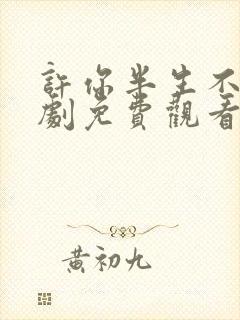 許你半生不
劇免費觀看
黃初九